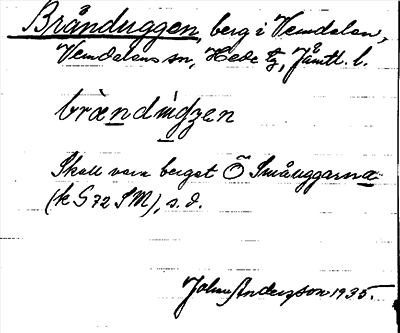 Brånduggen, berg i Vemdalen,
Vemdalens sn, Hede tg, Jämtl. l.
brænduggen
Skall vara berget Ö Småuggarna
(k S 72 SM), s. d.
Johan Anderson 1935.